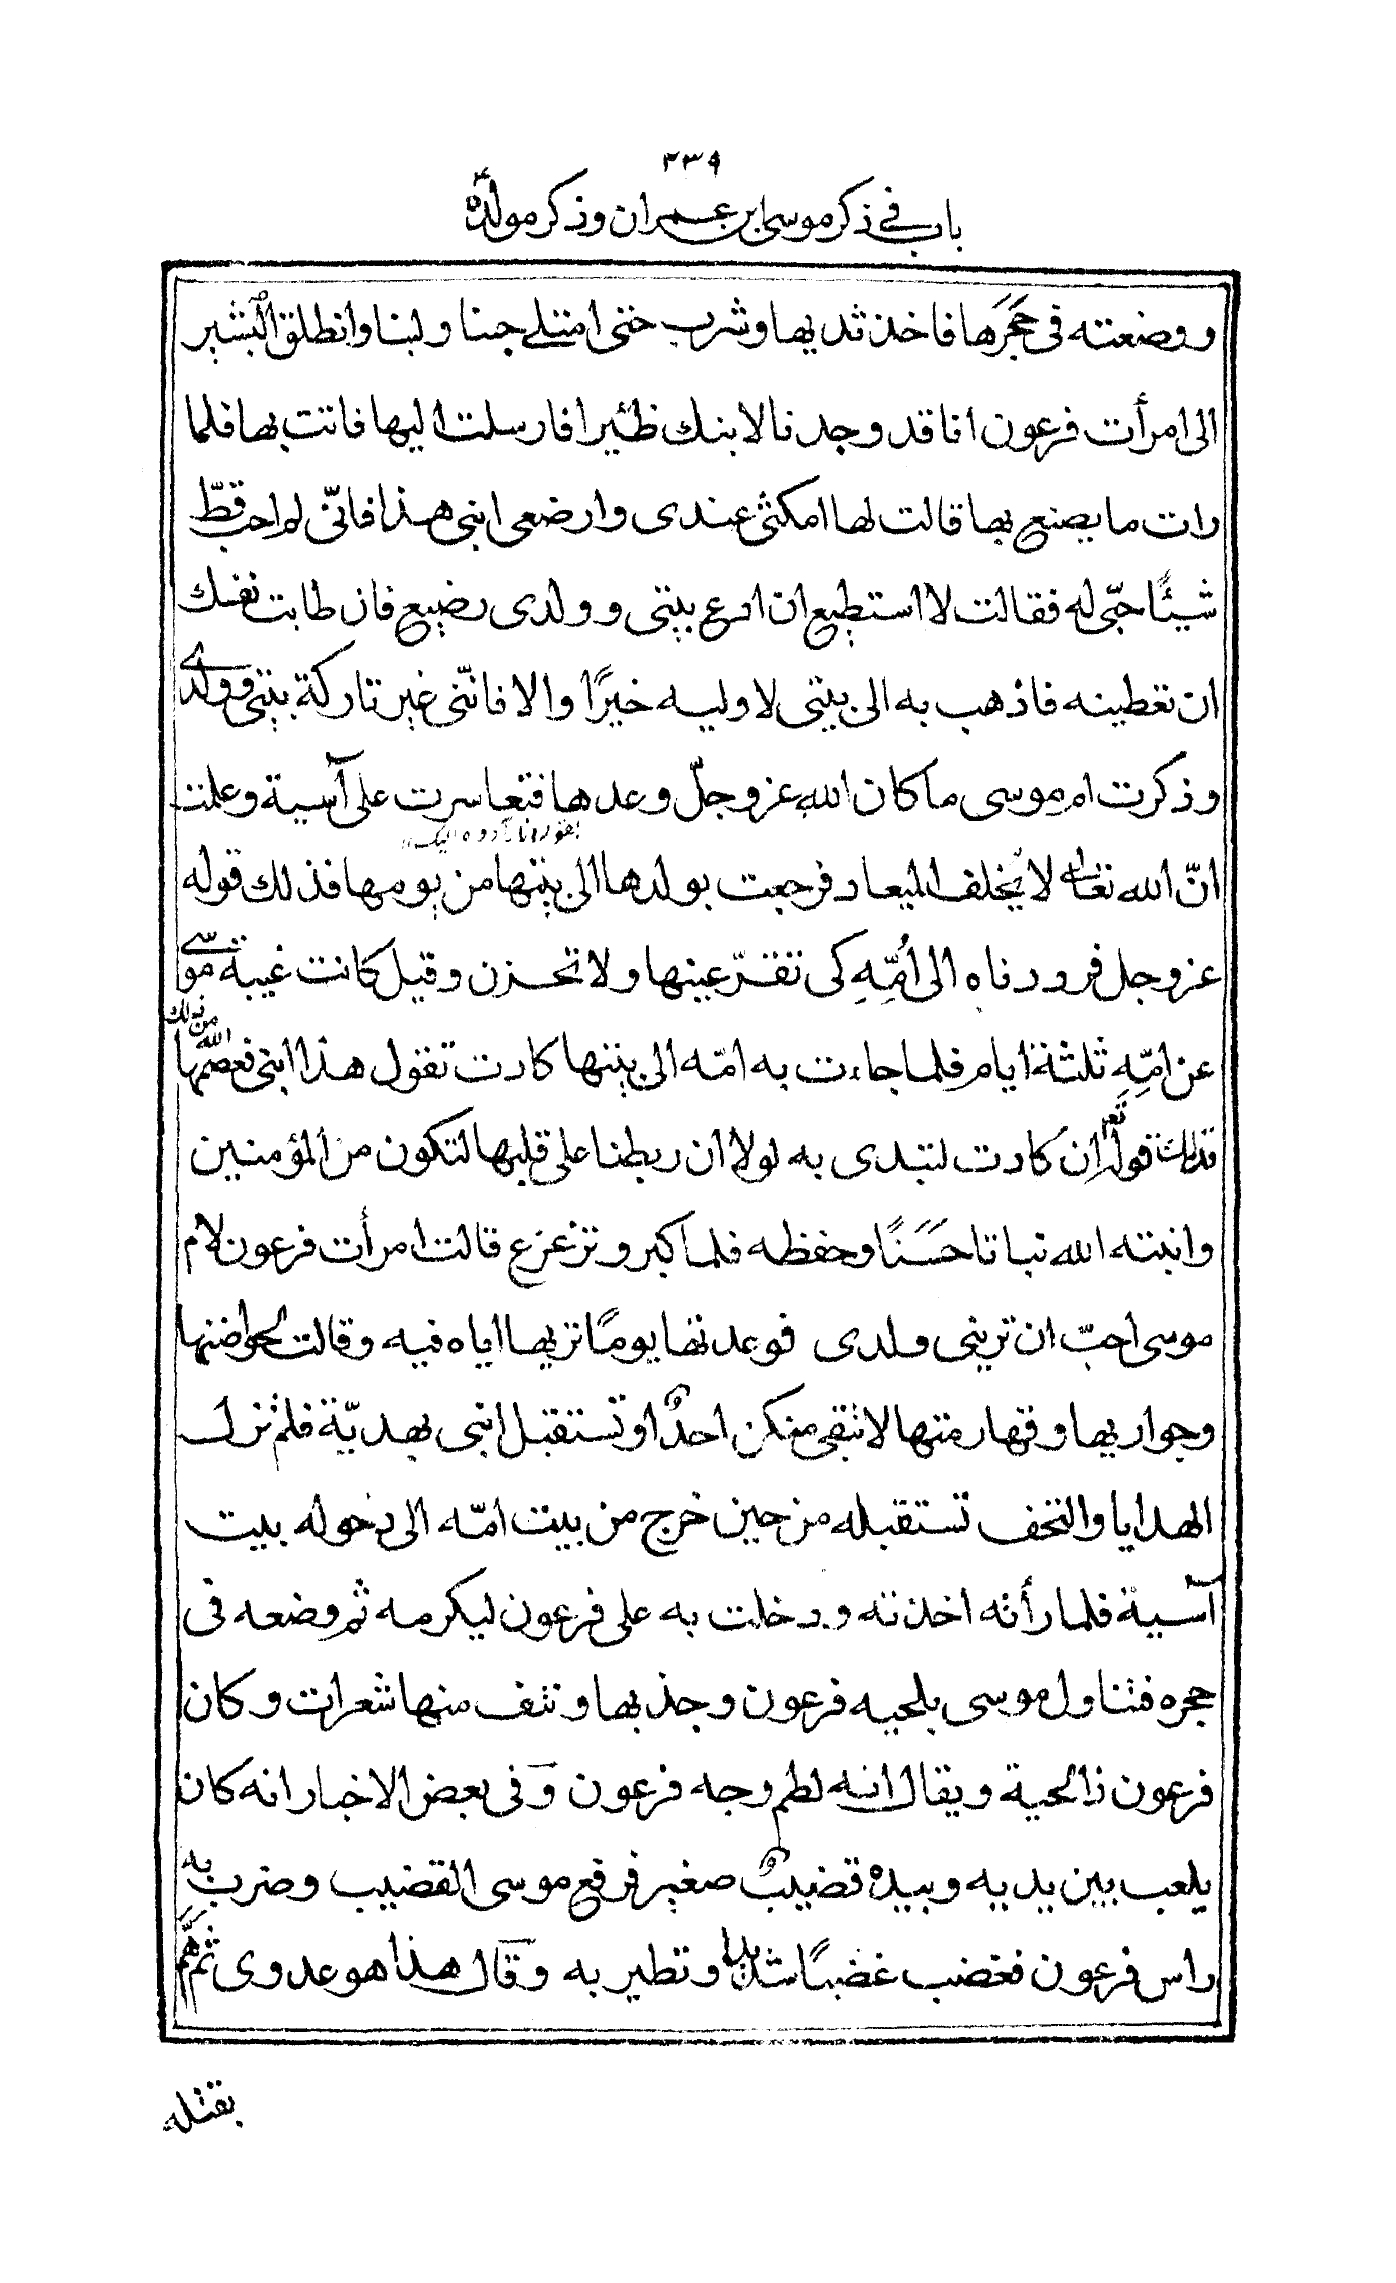 ٢٣٩
باب في ذكر موسى ابن عمران وذكر مولده
ووضعته في حَجَرها فاخذ ثديها وشرب حتى امتلے جبنا ولبنا وانطلق البشير
الى امرأت فرعون انا قد وجدنا لابنك ظئيرا فارسلت اليها فاتت بها فلما
رات ما يصنع بها قالت لها امكثي عندى وارضعى ابنى هذا فانّى لم احب قطّ
شيئًا حبّى له فقالت لا استطيع ان ادع بيتى وولدى رضيع فان طابت نفسك
ان تعطينه فاذهب به الى بيتى لا وليه خيرًا والا فانّنى غير تاركة بيتى وولدے
وذكرت ام موسى ما كان الله عز وجلّ وعدها فتعاسرت على آسية وعلمت
انّ الله تعالى لا يخلف الميعاد فرجعت بولدها الى بيتها من يومها فذلك قوله
عز وجل فرددناه الى اُمِّهِ كى تقرّ عينها ولا تحزن وقيل كانت غيبة موسے
عن امِّهِ ثلثة ايام فلما جاءت به امّه الى بيتها كادت تقول هذا ابنى فعصمها الله من ذلك
فذلك قوله تعم اِن كادت لتبدى به لولا ان ربطنا على قلبها لتكون من المؤمنين
وانبته الله نباتا حَسَنًا وحفظه فلما كبر وتزعزع قالت امرأت فرعون لام
موسى احبّ ان ترينى ولدى فوعدتها يومًا تريها اياه فيه وقالت لحواضنها
وجواريها وقهارمتها لا تبقى منكن احدٌ او تستقبل ابنى بهديّة فلم تزل
الهدايا والتحف تستقبله من حين خرج من بيت امّه الى دخوله بيت
آسية فلما رأته اخذته ودخلت به على فرعون ليكرمه ثم وضعه فى
حجره فتناول موسى بلحيه فرعون وجذبها ونتف منها شعرات وكان
فرعون ذا لحية ويقال انه لطم وجه فرعون وفى بعض الاخبار انه كان
يلعب بين يديه وبيده قضيبٌ صغير فرفع موسى القضيب وضرب به
راس فرعون فغضب غضبًا شديدا وتطير به وقال هذا هو عدوى ثم همّ
بقتله